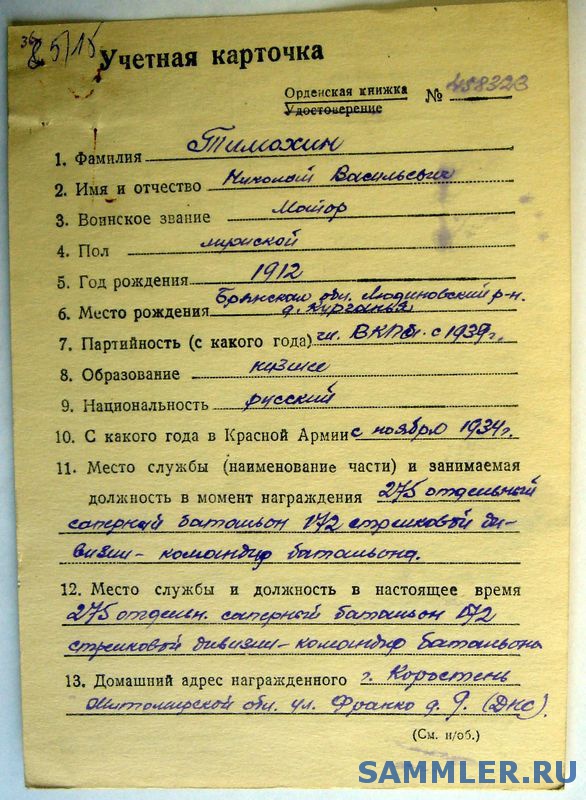 85/15
Учетная карточка
Орденская книжка
Удостоверение № 458323
1. Фамилия Тимохин
2. Имя и отчество Николай Васильевич
3. Воинское звание Майор
4. Пол мужской
5. Год рождения 1912
Брянская обл. Людиновский р-н.
6. Место рождения д. Курганье
7. Партийность (с какого года) чл. ВКПб. с 1939г.
8. Образование низшее
9. Национальность русский
10. С какого года в Красной Армии с ноября 1934г.
11. Место службы (наименование части) и занимаемая
должность в момент награждения 275 отдельный
саперный батальон 172 стрелковой ди-
визии - командир батальона.
12. Место службы и должность в настоящее время
275 отдельн. саперный батальон 172
стрелковой дивизии - командир батальона
13. Домашний адрес награжденного г. Коростень
Житомирской обл. ул. Франко д. 9. (ДНС).
(См. н/об.)
SAMMLER.RU